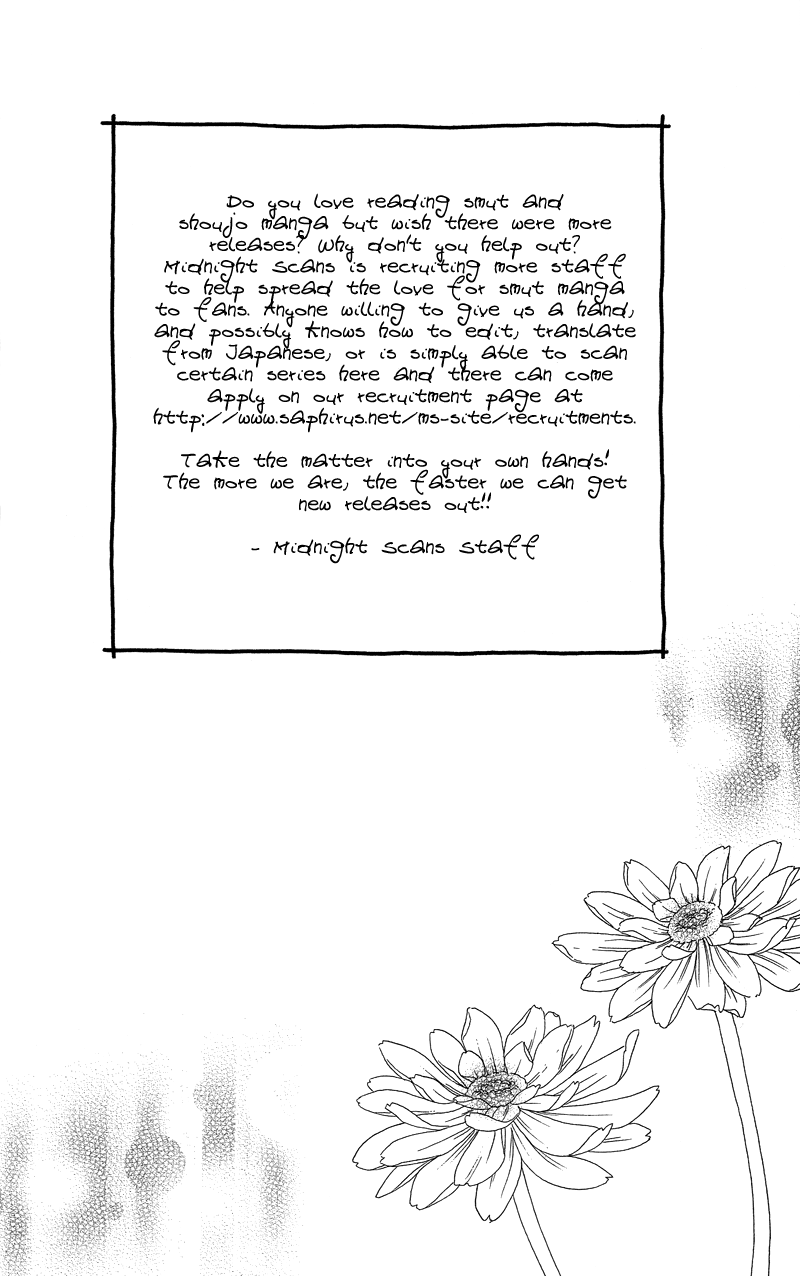 Do you love reading smut and
shoujo manga but wish there were more
releases? Why don't you help out?
Midnight Scans is recruiting more staff
to help spread the love for smut manga
to fans. Anyone willing to give us a hand,
and possibly knows how to edit, translate
from Japanese, or is simply able to scan
certain series here and there can come
apply on our recruitment page at
http://www.saphirus.net/ms-site/recruitments.
Take the matter into your own hands!
The more we are, the faster we can get
new releases out!!
- Midnight Scans Staff